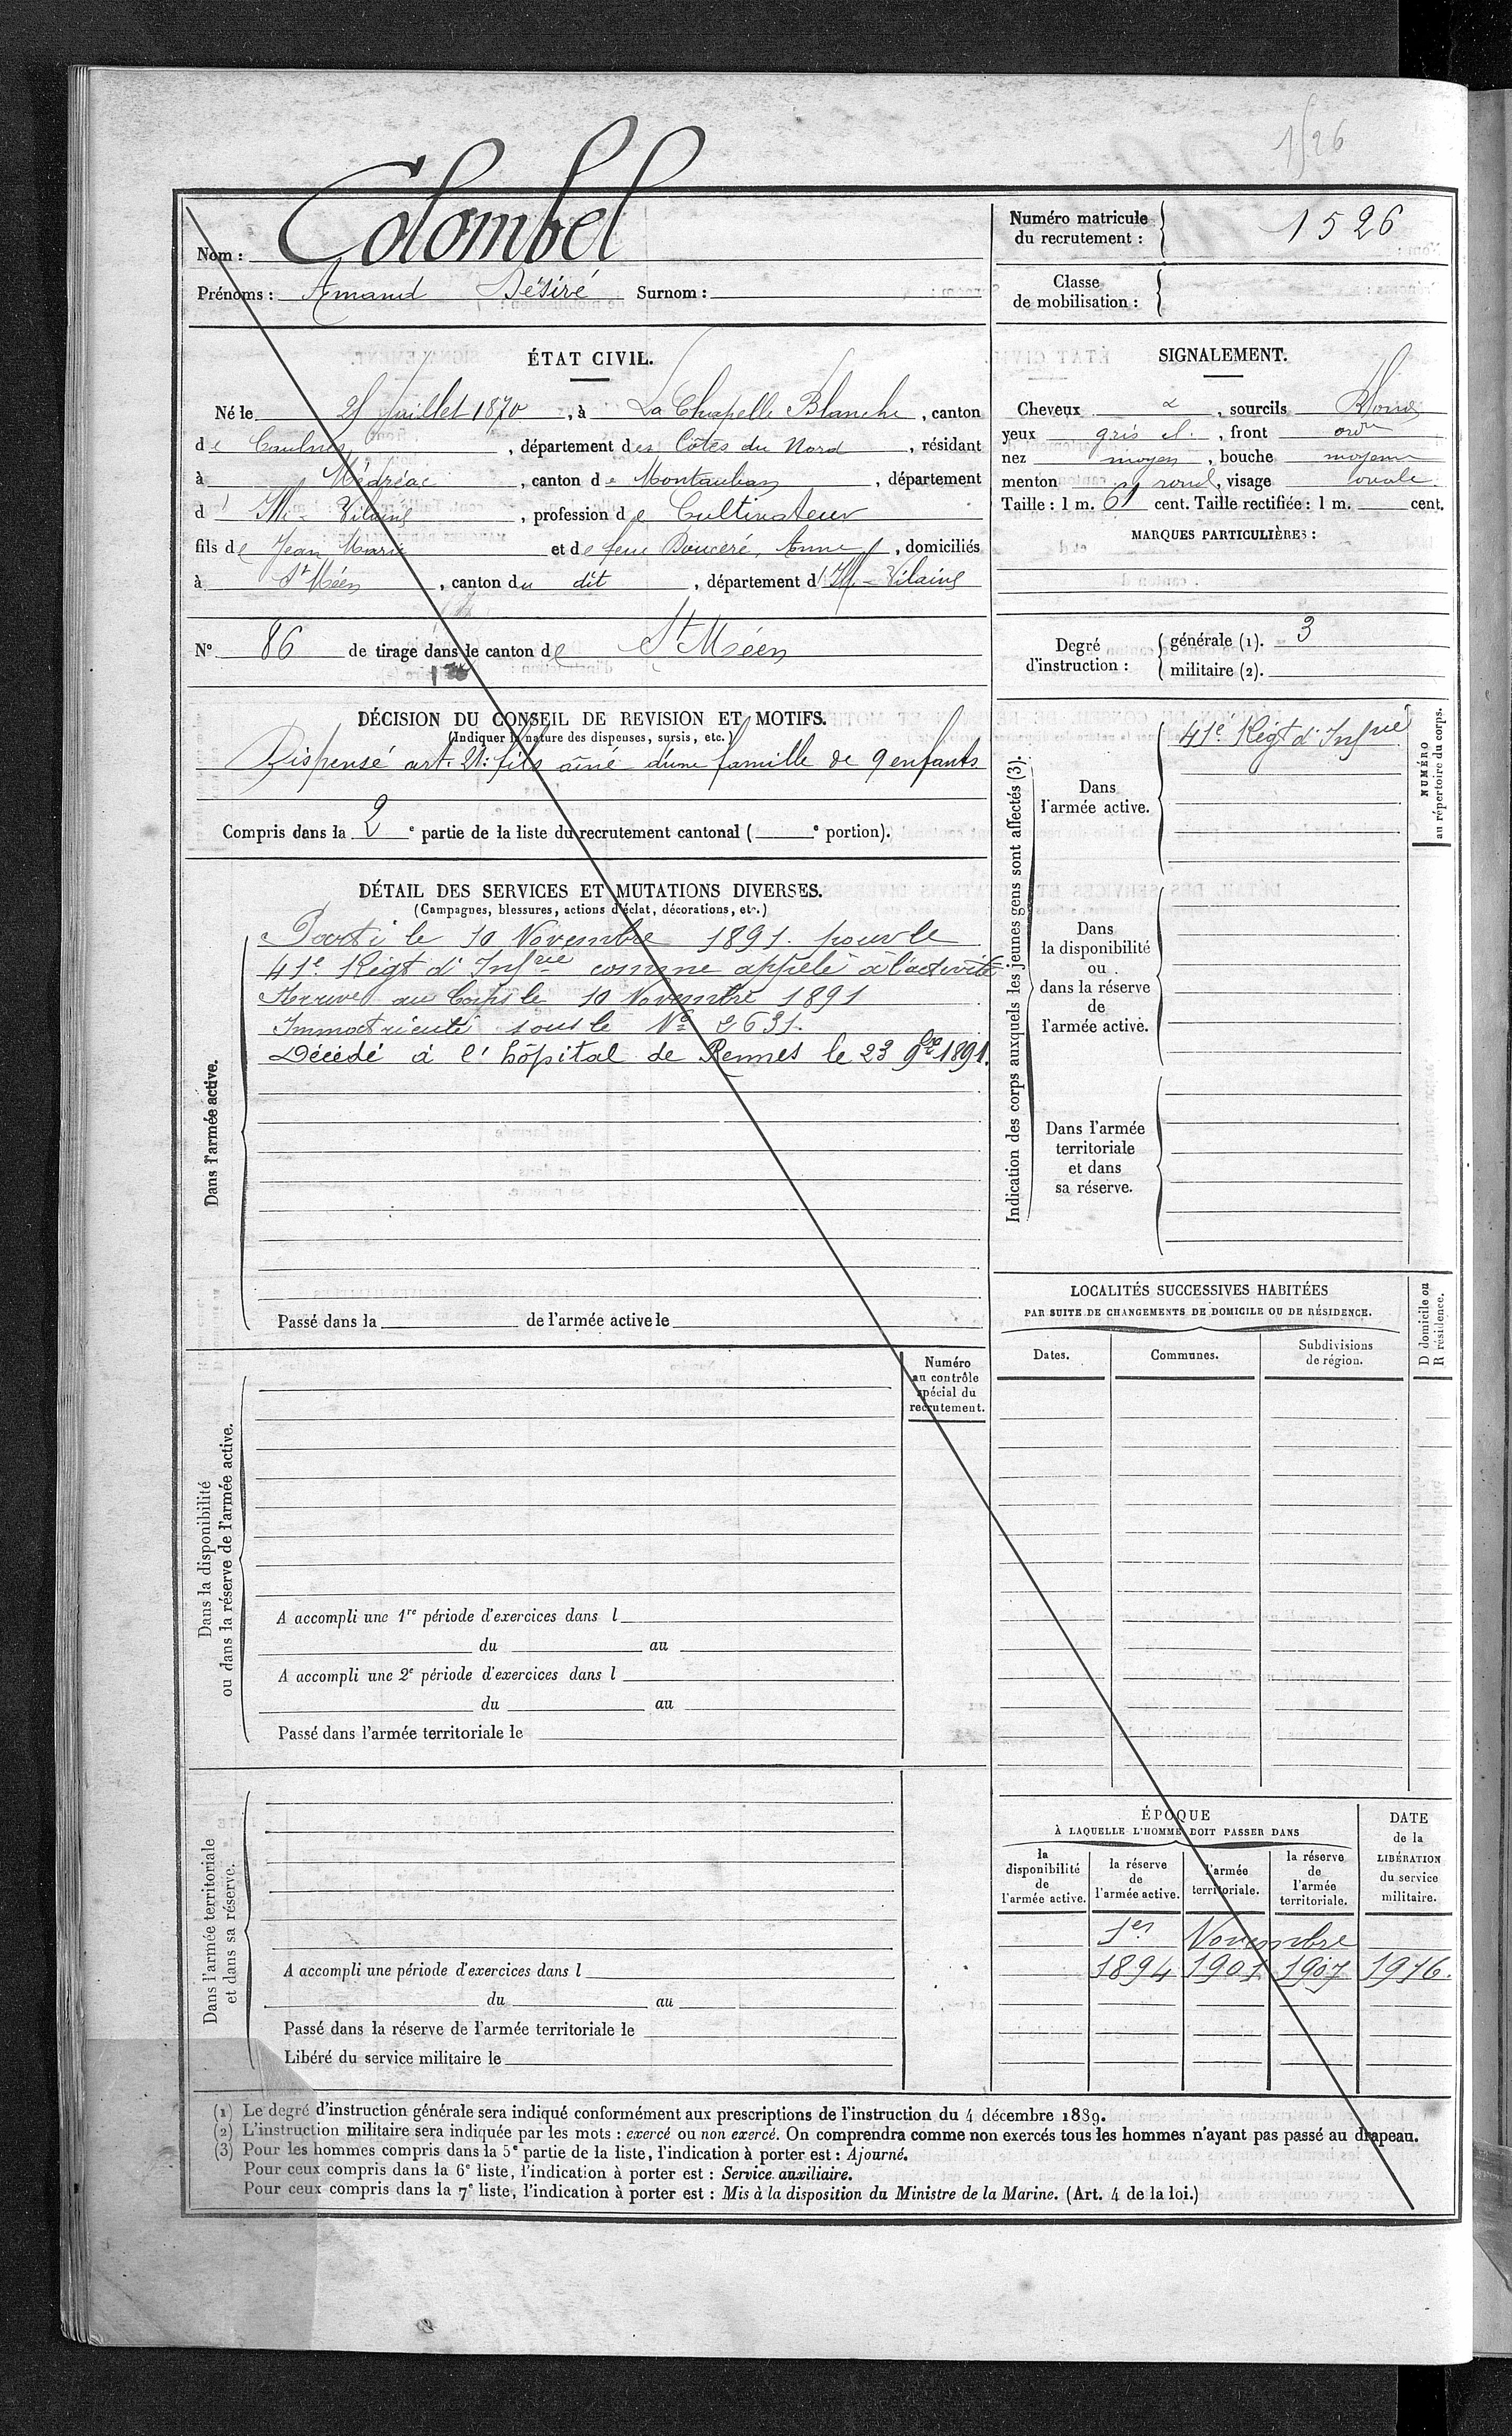 1526
Nom : Colombel
Prénoms : Amand Désiré Surnom :
Numéro matricule du recrutement : 1526
Classe de mobilisation :
ÉTAT CIVIL.
Né le Juillet 1870, à La Chapelle Blanche, canton
de Caulnes, département des Côtes du Nord, résidant
à Médréac, canton de Montauban, département
d'Ille-Vilaine, profession de Cultivateur
fils de Jean Marie et de feue Anne, domiciliés
à St Méen, canton du dit, département d'Ille-Vilaine
N° 86 de tirage dans le canton de St Méen
SIGNALEMENT.
Cheveux, sourcils Blonds
yeux gris cl., front ordre
nez moyen, bouche moyenne
menton rond, visage ovale
Taille : 1 m. 61 cent. Taille rectifiée : 1 m. cent.
MARQUES PARTICULIÈRES :
Degré d'instruction : générale (1). 3
militaire (2).
DÉCISION DU CONSEIL DE REVISION ET MOTIFS.
(Indiquer la nature des dispenses, sursis, etc.)
Dispensé art. 21: fils aîné d'une famille de 9 enfants
Compris dans la 2e partie de la liste du recrutement cantonal ( e portion).
DÉTAIL DES SERVICES ET MUTATIONS DIVERSES.
(Campagnes, blessures, actions d'éclat, décorations, etc.)
Dans l'armée active.
Parti le 10 Novembre 1891. pour le
41e Régt d'Infrie comme appelé à l'activité
Arrivé au Corps le 10 Novembre 1891
Immatriculé sous le N° 2631.
Décédé à l'hôpital de Rennes le 23 9bre 1891.
Passé dans la de l'armée active le
Indication des corps auxquels les jeunes gens sont affectés (3).
Dans l'armée active.
41e Régt d'Infrie
NUMÉRO au répertoire du corps.
Dans la disponibilité ou dans la réserve de l'armée active.
Dans l'armée territoriale et dans sa réserve.
LOCALITÉS SUCCESSIVES HABITÉES
PAR SUITE DE CHANGEMENTS DE DOMICILE OU DE RÉSIDENCE.
Dates.
Communes.
Subdivisions de région.
D domicile ou R résidence.
Dans la disponibilité ou dans la réserve de l'armée active.
Numéro au contrôle spécial du recrutement.
A accompli une 1re période d'exercices dans l
du au
A accompli une 2e période d'exercices dans l
du au
Passé dans l'armée territoriale le
Dans l'armée territoriale et dans sa réserve.
A accompli une période d'exercices dans l
du au
Passé dans la réserve de l'armée territoriale le
Libéré du service militaire le
ÉPOQUE
À LAQUELLE L'HOMME DOIT PASSER DANS
la disponibilité de l'armée active.
la réserve de l'armée active.
l'armée territoriale.
la réserve de l'armée territoriale.
DATE de la LIBÉRATION du service militaire.
1er Novembre
1894 1901 1907 1916.
(1) Le degré d'instruction générale sera indiqué conformément aux prescriptions de l'instruction du 4 décembre 1889.
(2) L'instruction militaire sera indiquée par les mots : exercé ou non exercé. On comprendra comme non exercés tous les hommes n'ayant pas passé au drapeau.
(3) Pour les hommes compris dans la 5e partie de la liste, l'indication à porter est : Ajourné.
Pour ceux compris dans la 6e liste, l'indication à porter est : Service auxiliaire.
Pour ceux compris dans la 7e liste, l'indication à porter est : Mis à la disposition du Ministre de la Marine. (Art. 4 de la loi.)